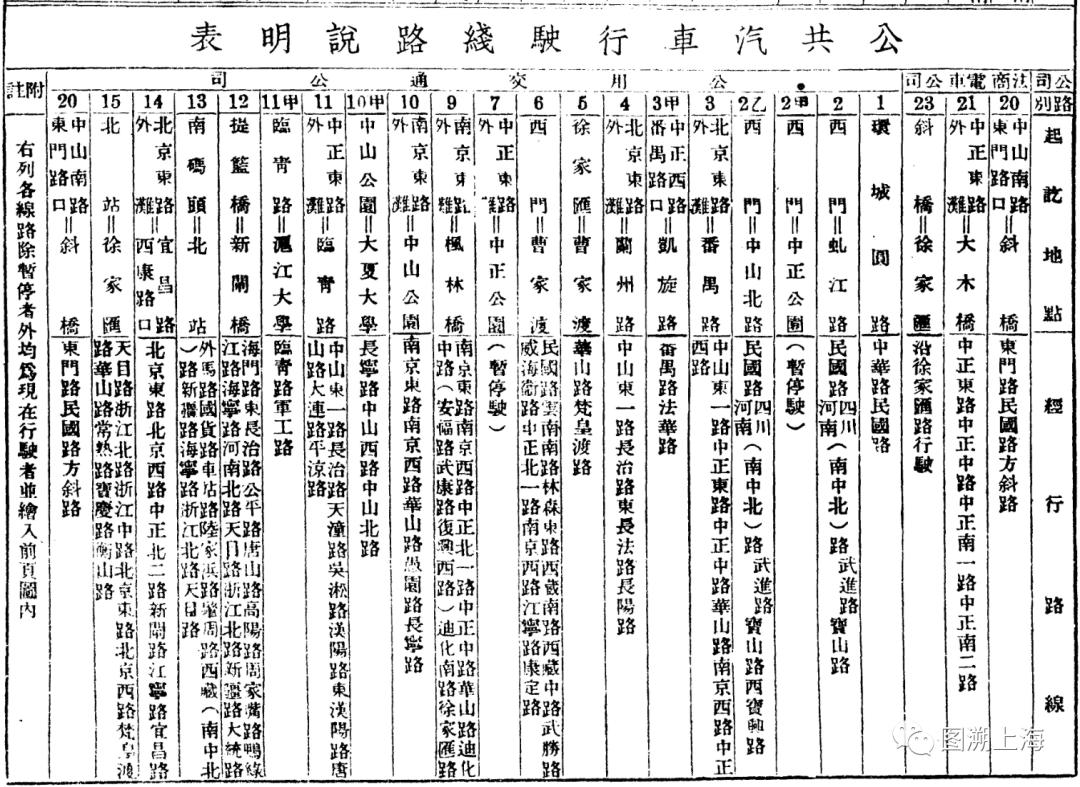 公共汽車行駛綫路說明表
公司
路別
起訖地點
經行路線
法商電車公司
20
中山南路東門路口＝斜橋
東門路民國路方斜路
21
中正東路外灘＝大木橋
中正東路中正中路中正南一路中正南二路
23
斜橋＝徐家匯
沿徐家匯路行駛
公用交通公司
1
環城圓路
中華路民國路
2
西門＝虬江路
民國路四川河南（南中北）路武進路寶山路
2甲
西門＝中正公園
（暫停駛）
2乙
西門＝中山北路
民國路四川河南（南中北）路武進路寶山路西寶興路
3
北京東路外灘＝番禺路
中山東一路中正東路中正中路華山路南京西路中正西路
3甲
中正西路番禺路口＝凱旋路
番禺路法華路
4
北京東路外灘＝蘭州路
中山東一路長治路東長治路長陽路
5
徐家匯＝曹家渡
華山路梵皇渡路
6
西門＝曹家渡
民國路雲南南路林森東路西藏南路西藏中路武勝路威海衛路中正北一路南京西路江寧路康定路
7
中正東路外灘＝中正公園
（暫停駛）
9
南京東路外灘＝楓林橋
南京東路南京西路中正北一路中正中路華山路迪化中路（安福路武康路復興西路）迪化南路徐家匯路
10
南京東路外灘＝中山公園
南京東路南京西路華山路愚園路長寧路
10甲
中山公園＝大夏大學
長寧路中山西路中山北路
11
中正東路外灘＝臨青路
中山東一路長治路天潼路吳淞路漢陽路東漢陽路唐山路大連路平涼路
11甲
臨青路＝滬江大學
臨青路軍工路
12
提籃橋＝新閘橋
海門路東長治路公平路唐山路高陽路周家嘴路鴨綠江路海寧路河南北路天目路浙江北路新疆路大統路
13
南碼頭＝北站
外馬路國貨路車站路陸家浜路肇周路西藏（南中北）路新疆路海寧路浙江北路天目路
14
北京東路外灘＝宜昌路西康路口
北京東路北京西路中正北二路新閘路江寧路宜昌路
15
北站＝徐家匯
天目路浙江北路浙江中路北京東路北京西路梵皇渡路華山路常熟路寶慶路衡山路
20
中山南路東門路口＝斜橋
東門路民國路方斜路
附註
右列各線路除暫停者外均為現在行駛者並繪入前頁圖內
图溯上海